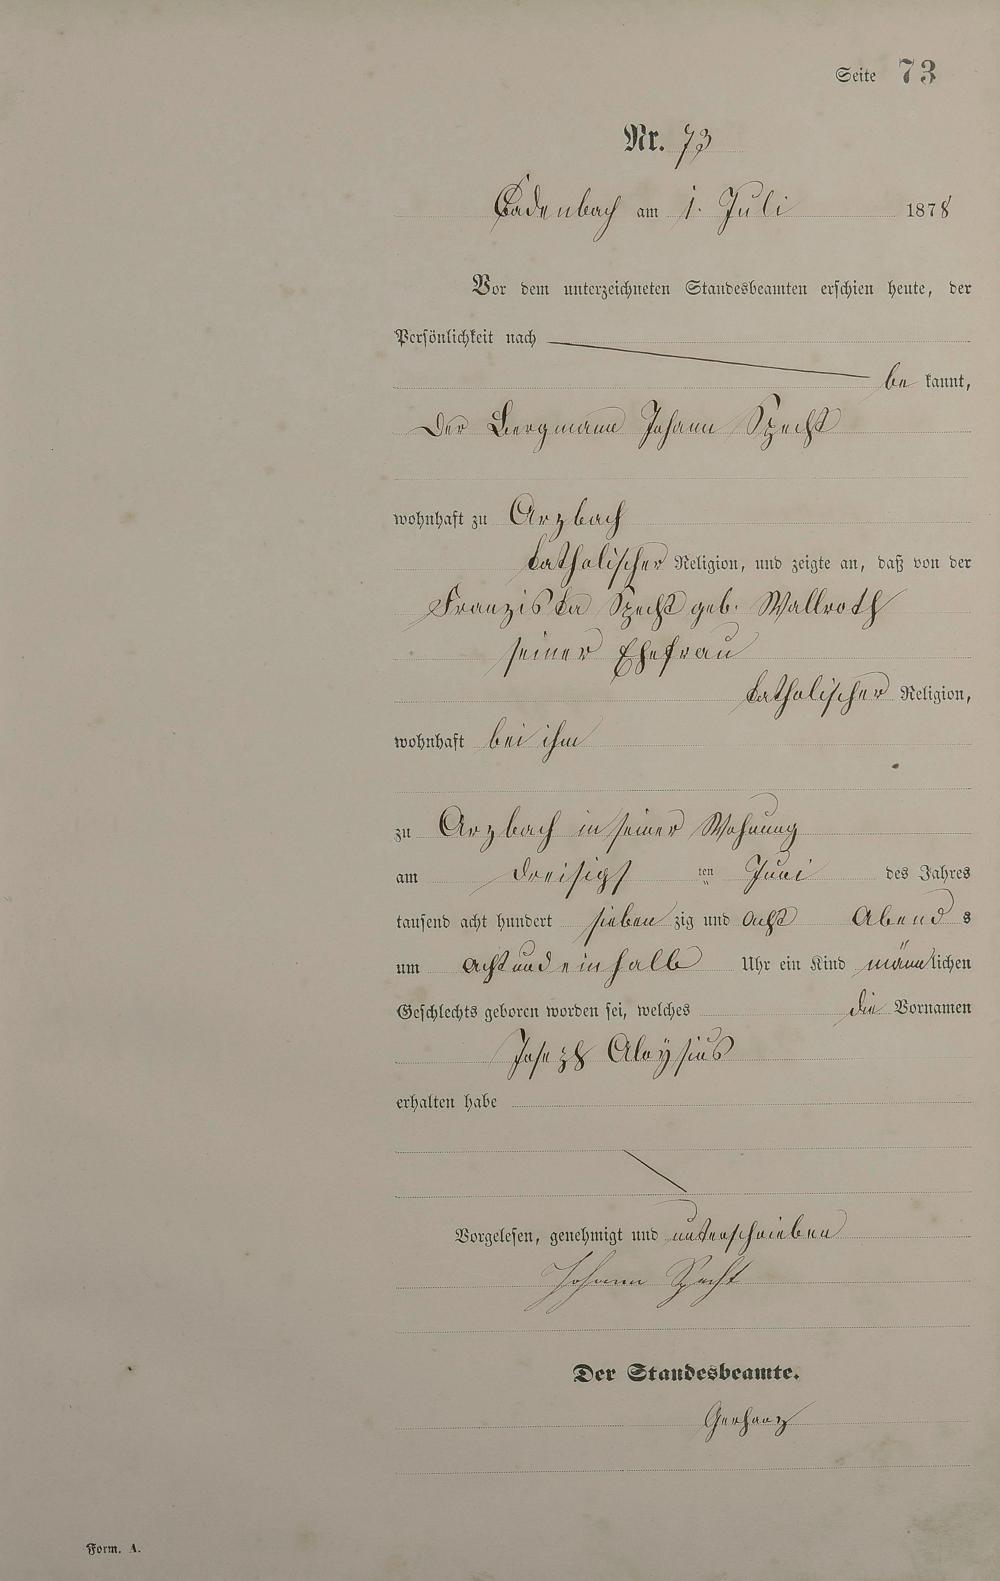 Seite 73
Nr. 73
Cadenbach am 1. Juli 1878
Vor dem unterzeichneten Standesbeamten erschien heute, der
Persönlichkeit nach
be kannt,
der Bergmann Johann Specht
wohnhaft zu Arzbach
katholischer Religion, und zeigte an, daß von der
Franziska Specht geb. Wallroth
seiner Ehefrau
katholischer Religion,
wohnhaft bei ihm
zu Arzbach in seiner Wohnung
am dreisigst ten Juni des Jahres
tausend acht hundert sieben zig und acht Abend s
um acht und ein halb Uhr ein Kind männlichen
Geschlechts geboren worden sei, welches die Vornamen
Joseph Aloysius
erhalten habe
Vorgelesen, genehmigt und unterschrieben
Johann Specht
Der Standesbeamte.
Gerharz
Form. A.